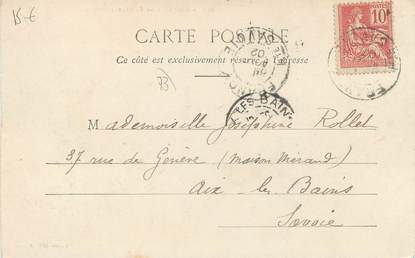 15-€
CARTE POSTALE
Ce côté est exclusivement réservé à l'adresse
10
73
Mademoiselle Joséphine Rollet
37 rue de Genève (maison Mérand)
Aix les Bains
Savoie